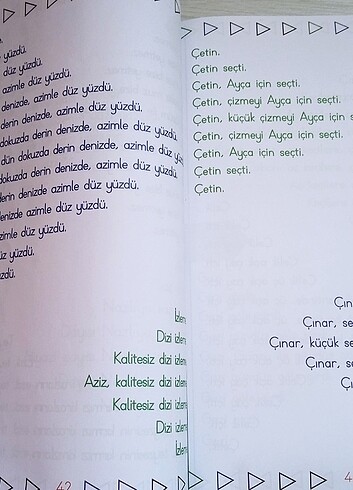 yüzdü.
düz yüzdü.
azimle düz yüzdü.
denizde, azimle düz yüzdü.
derin denizde, azimle düz yüzdü.
dokuzda derin denizde, azimle düz yüzdü.
dün dokuzda derin denizde, azimle düz
dokuzda derin denizde, azimle düz yüzdü.
derin denizde azimle düz yüzdü.
denizde azimle düz yüzdü.
azimle düz yüzdü.
düz yüzdü.
yüzdü.
Dizi
Kalitesiz dizi
Aziz, kalitesiz dizi
Kalitesiz dizi
Dizi
42
Çetin.
Çetin seçti.
Çetin, Ayça için seçti.
Çetin, çizmeyi Ayça için seçti.
Çetin, küçük çizmeyi Ayça için
Çetin, çizmeyi Ayça için seçti.
Çetin, Ayça için seçti.
Çetin seçti.
Çetin.
Çınar,
Çınar, küçük
Çınar,